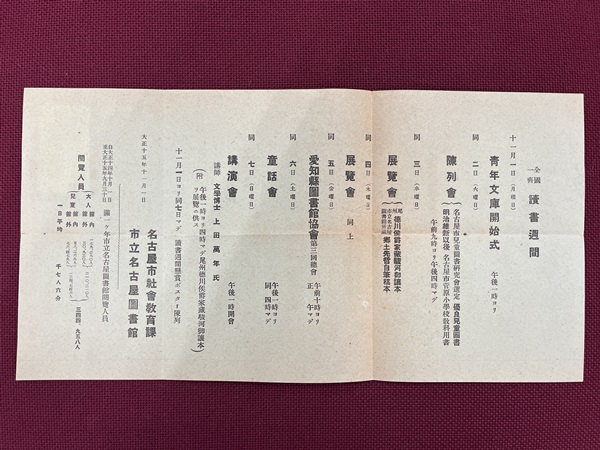 全國一齊 讀書週間
十一月一日(月曜日)
青年文庫開始式 午後一時ヨリ
同 二日(火曜日)
陳列會 名古屋市兒童圖書研究會選定 優良兒童圖書
明治維新以後 名古屋市菅原小學校教科用書
午前九時ヨリ午後四時マデ
同 三日(水曜日)
展覽會 尾州德川侯爵家藏駿河御讓本
市立名古屋圖書館所藏 鄕土先哲自筆稿本
同 四日(木曜日)
展覽會 同上
同 五日(金曜日)
愛知縣圖書館協會第三回總會 午前十時ヨリ
正午マデ
同 六日(土曜日)
童話會 午後一時ヨリ
同四時マデ
同 七日(日曜日)
講演會 午後一時開會
講師 文學博士 上田萬年氏
(附 午後一時ヨリ四時マデ尾州德川侯爵家藏駿河御讓本
ヲ展覽ニ供ス)
十一月一日ヨリ同七日マデ 讀書週間懸賞ポスター陳列
大正十五年十一月一日
名古屋市社會教育課
市立名古屋圖書館
自大正十四年十月一日
至大正十五年九月三十日 滿一ケ年市立名古屋圖書館閱覽人員
閱覽人員
大人 館內
館外
兒童 館內
館外
三四四、九五八人
一日平均 千七八六分